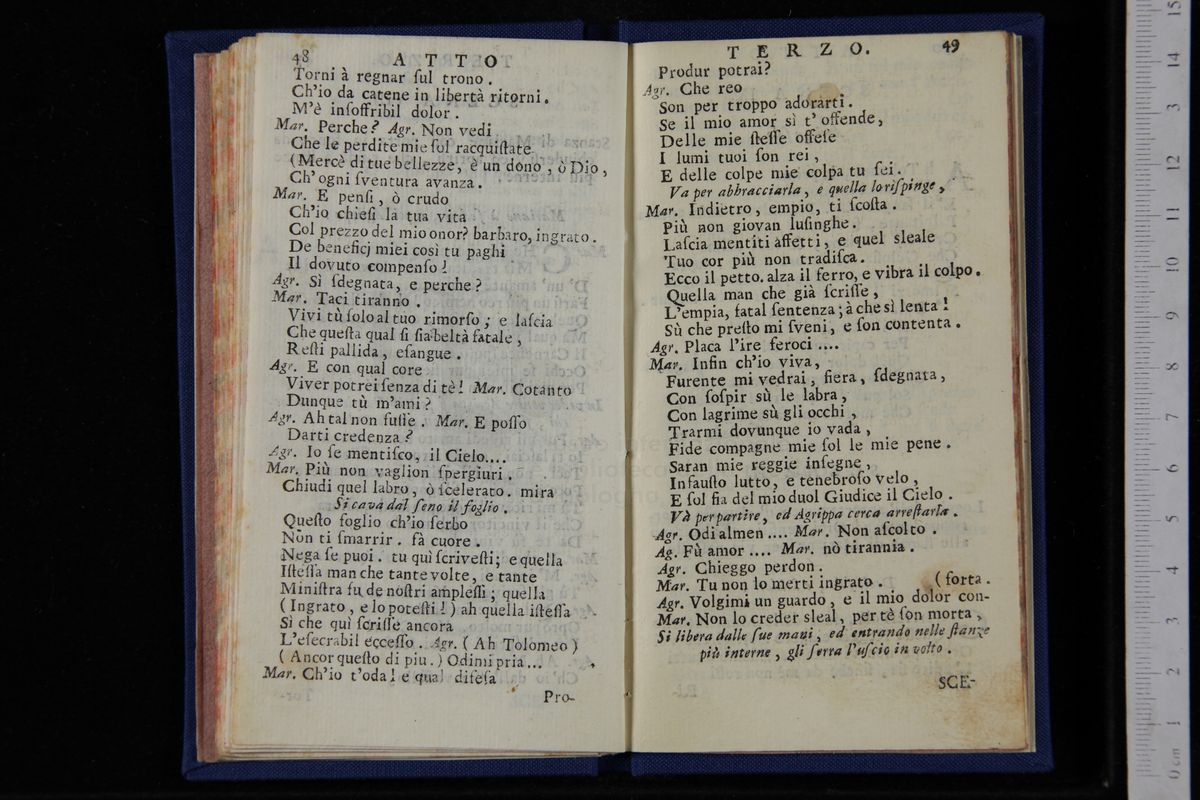 48 ATTO
Torni à regnar ſul trono.
Ch'io da catene in libertà ritorni.
M'è inſoffribil dolor.
Mar. Perche? Agr. Non vedi
Che le perdite mie ſol racquiſtate
(Mercè di tue bellezze, è un dono, ò Dio,
Ch'ogni ſventura avanza.
Mar. E penſi, ò crudo
Ch'io chieſi la tua vita
Col prezzo del mio onor? barbaro, ingrato.
De beneficj miei così tu paghi
Il dovuto compenſo!
Agr. Sì ſdegnata, e perche?
Mar. Taci tiranno.
Vivi tù ſolo al tuo rimorſo; e laſcia
Che queſta qual ſi ſia beltà fatale,
Reſti pallida, eſangue.
Agr. E con qual core
Viver potrei ſenza di tè! Mar. Cotanto
Dunque tù m'ami?
Agr. Ah tal non fuſſe. Mar. E poſſo
Darti credenza?
Agr. Io ſe mentiſco, il Cielo....
Mar. Più non vaglion ſpergiuri.
Chiudi quel labro, ò ſcelerato. mira
Si cava dal ſeno il foglio.
Queſto foglio ch'io ſerbo
Non ti ſmarrir. fà cuore.
Nega ſe puoi. tu quì ſcriveſti; e quella
Iſteſſa man che tante volte, e tante
Miniſtra fu de noſtri ampleſſi; quella
(Ingrato, e lo poteſti!) ah quella iſteſſa
Sì che quì ſcriſſe ancora
L'eſecrabil ecceſſo. Agr. (Ah Tolomeo)
(Ancor queſto di piu.) Odimi pria...
Mar. Ch'io t'oda! e qual difeſa
Pro-
TERZO. 49
Produr potrai?
Agr. Che reo
Son per troppo adorarti.
Se il mio amor sì t'offende,
Delle mie ſteſſe offeſe
I lumi tuoi ſon rei,
E delle colpe mie colpa tu ſei.
Va per abbracciarla, e quella lo riſpinge,
Mar. Indietro, empio, ti ſcoſta.
Più non giovan luſinghe.
Laſcia mentiti affetti, e quel sleale
Tuo cor più non tradiſca.
Ecco il petto. alza il ferro, e vibra il colpo.
Quella man che già ſcriſſe,
L'empia, fatal ſentenza; à che sì lenta!
Sù che preſto mi ſveni, e ſon contenta.
Agr. Placa l'ire feroci....
Mar. Infin ch'io viva,
Furente mi vedrai, fiera, ſdegnata,
Con ſoſpir sù le labra,
Con lagrime sù gli occhi,
Trarmi dovunque io vada,
Fide compagne mie ſol le mie pene.
Saran mie reggie inſegne,
Infauſto lutto, e tenebroſo velo,
E ſol fia del mio duol Giudice il Cielo.
Và per partire, ed Agrippa cerca arreſtarla.
Agr. Odi almen.... Mar. Non aſcolto.
Ag. Fù amor.... Mar. nò tirannia.
Agr. Chieggo perdon.
Mar. Tu non lo merti ingrato. (forta.
Agr. Volgimi un guardo, e il mio dolor con-
Mar. Non lo creder sleal, per tè ſon morta,
Si libera dalle ſue mani, ed entrando nelle ſtanze
più interne, gli ſerra l'uſcio in volto.
SCE-